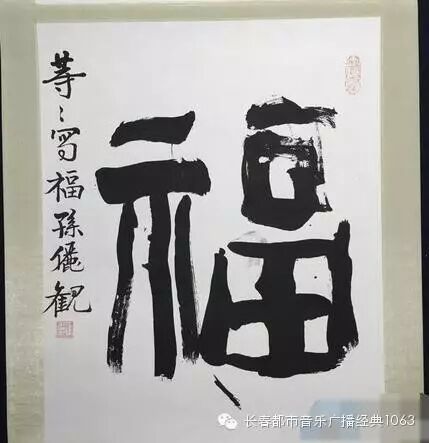 福
等〻写福孫儷観
长春都市音乐广播经典1063